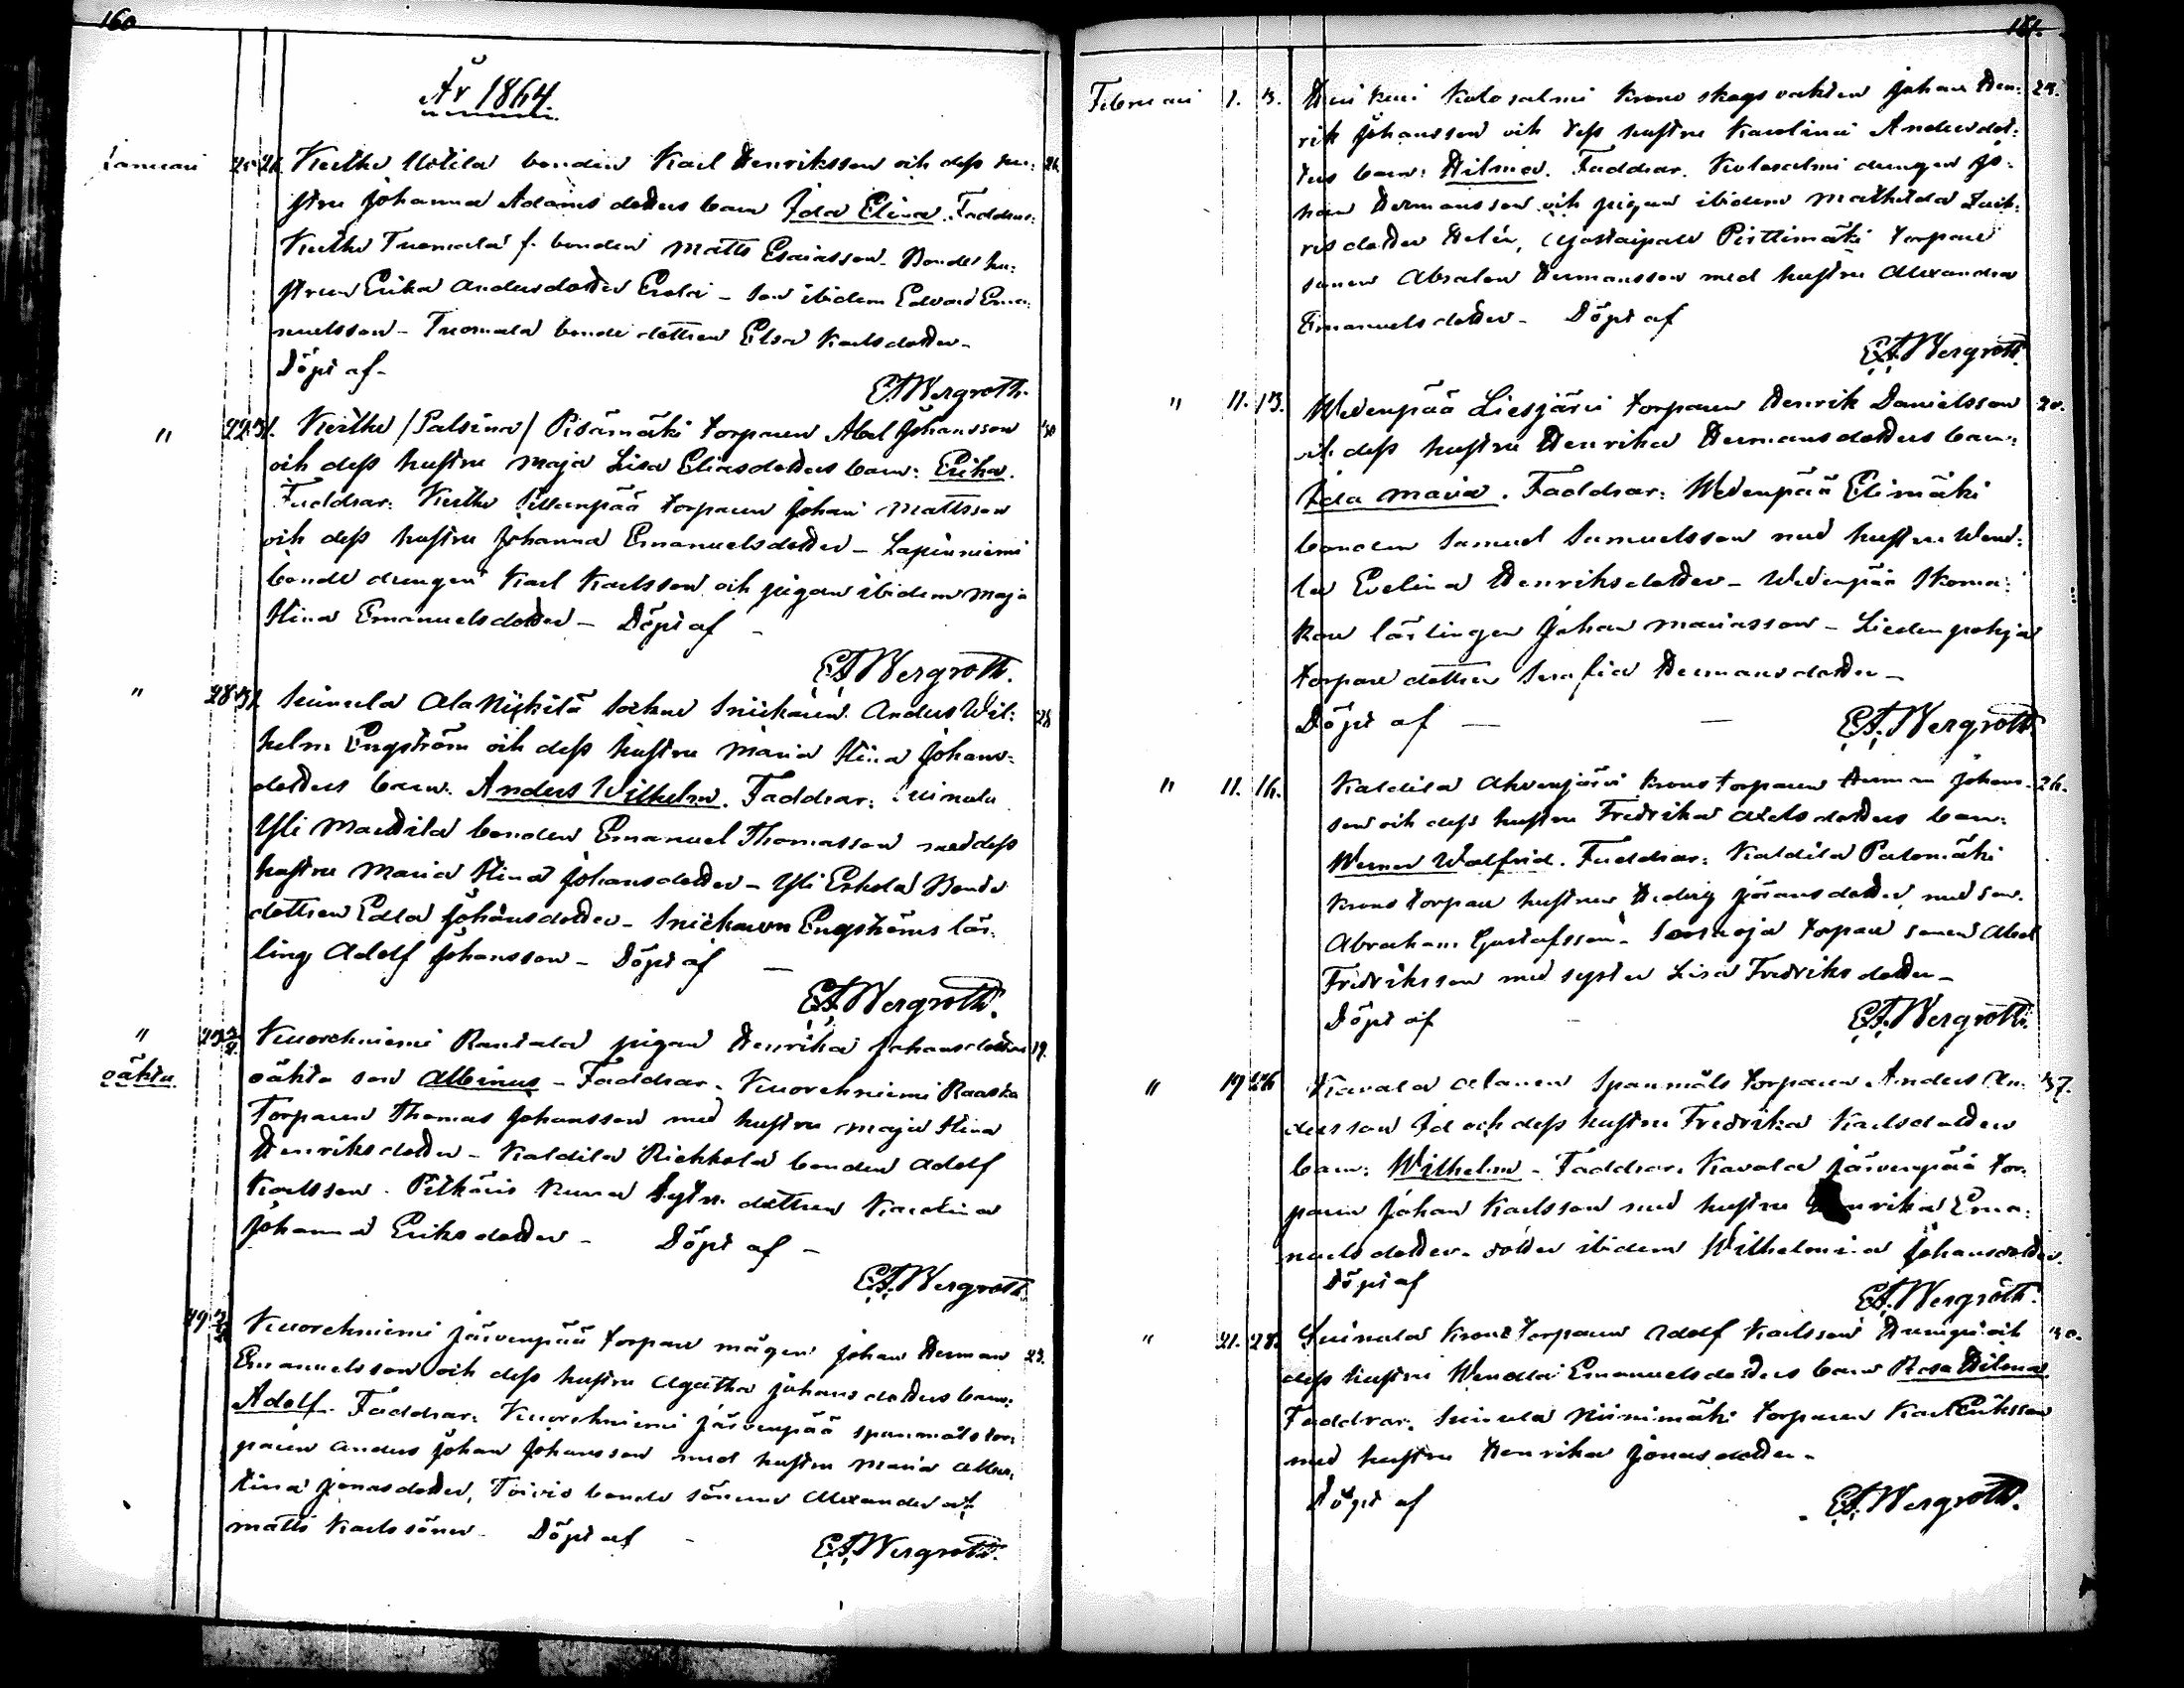 160
År 1864.
Januari 25. 26. Keitho Uotila bonden Karl Henriksson och dess hu: 26.
stru Johanna Adamsdotters barn Ida Elina. Faddrar:
Keitho Tuomala f. bonden Matts Esaiasson. Bonde hu:
strun Erika Andersdotter Erola - son ibidem Edvard Ema:
nuelsson - Tuomala bonde dottren Elsa Karlsdotter -
Döpt af -
E.A. Wergroth.
" 22. 31. Keitho /Palsina/ Pisämäki torparen Abel Johansson 30
och dess hustru Maja Lisa Eliasdotters barn: Erika.
Faddrar: Keitho torparen Johan Mattsson
och dess hustru Johanna Emanuelsdotter - Lapinniemi
bonde drengen Karl Karlsson och pigan ibidem Maja
Stina Emanuelsdotter - Döpt af -
E.A. Wergroth.
" 28. 31. Suinula Ala Nihkilä Socken Snickaren Anders Wil: 28
helm Engström och dess hustru Maria Stina Johans:
dotters barn: Anders Wilhelm. Faddrar: Suinula
Yli Mattila bonden Emanuel Thomasson med dess
hustru Maria Stina Johansdotter - Yli Erkola Bonde
dottren Edla Johansdotter - Snickaren Engströms lär:
ling Adolf Johansson - Döpt af -
E.A. Wergroth.
" Kuorehniemi Rantala pigan Henrika Johansdotters 19.
oäkta oäkta son Albinus - Faddrar. Kuorehniemi Raaska
Torparen Thomas Johansson med hustru Maja Stina
Henriksdotter - Kaldila Riekkola bonden Adolf
Karlsson. dottren Karolina
Johanna Eriksdotter - Döpt af -
E.A. Wergroth.
Kuorehniemi Järvenpää torpare mågen Johan Herman 23.
Emanuelsson och dess hustru Agatha Johansdotters barn:
Adolf. Faddrar: Kuorehniemi Järvenpää spanmåls tor:
paren Anders Johan Johansson med hustru Maria Alber:
tina Jonasdotter, Toivio bonde sönerne Alexander och
Matts Karlssöner - Döpt af -
E.A. Wergroth.
161.
Februari 7. 13. Kolosalmi Krono skogs vakten Johan Hen:
rik Johansson och dess hustru Karolina Andersdot:
ters barn: Hilma. Faddrar. Kolosalmi drengen Jo:
han Hermansson och pigan ibidem Mathilda Zack:
risdotter Helén, Pirttimäki torpare
sonen Absalon Hermansson med hustru Alexandra
Emanuelsdotter - Döpt af
E.A. Wergroth.
" 11. 13. Wedenpää Liesjärvi torparen Henrik Danielsson 20.
och dess hustru Henrika Hermansdotters barn:
Ida Maria. Faddrar: Wedenpää Elimäki
bonden Samuel Samuelsson med hustru Wend:
la Evelina Henriksdotter - Wedenpää Skoma:
kare lärlingen Johan Mariasson - Liedenpohja
torpare dottren Serafia Hermansdotter -
Döpt af -
E.A. Wergroth.
" 11. 16. Kaldila Ahvenjärvi krono torparen Herman Johans: 26.
son och dess hustru Fredrika Axelsdotters barn:
Werner Walfrid. Faddrar: Kaldila Palomäki
krono torpare hustrun Hedvig Göransdotter med son
Abraham Gustafsson - torpare sonen Abel
Fredriksson med syster Lisa Fredriksdotter -
Döpt af -
E.A. Wergroth.
" 19 26 Kavala Alanen Spanmåls torparen Anders An: 37.
dersson Id och dess hustru Fredrika Karlsdotters
barn: Wilhelm - Faddrar: Kavala Järvenpää tor:
paren Johan Karlsson med hustru Henrika Ema:
nuelsdotter - dotter ibidem Wilhelmina Johansdotter.
Döpt af
E.A. Wergroth.
" 21. 28. Suinula Krono Torparen Adolf Karlsson och 30.
dess hustru Wendla Emanuelsdotters barn Hilma
Faddrar: Suinula Niinimäki torparen Karl Eriksson
med hustru Henrika Jonasdotter -
Döpt af
E.A. Wergroth.